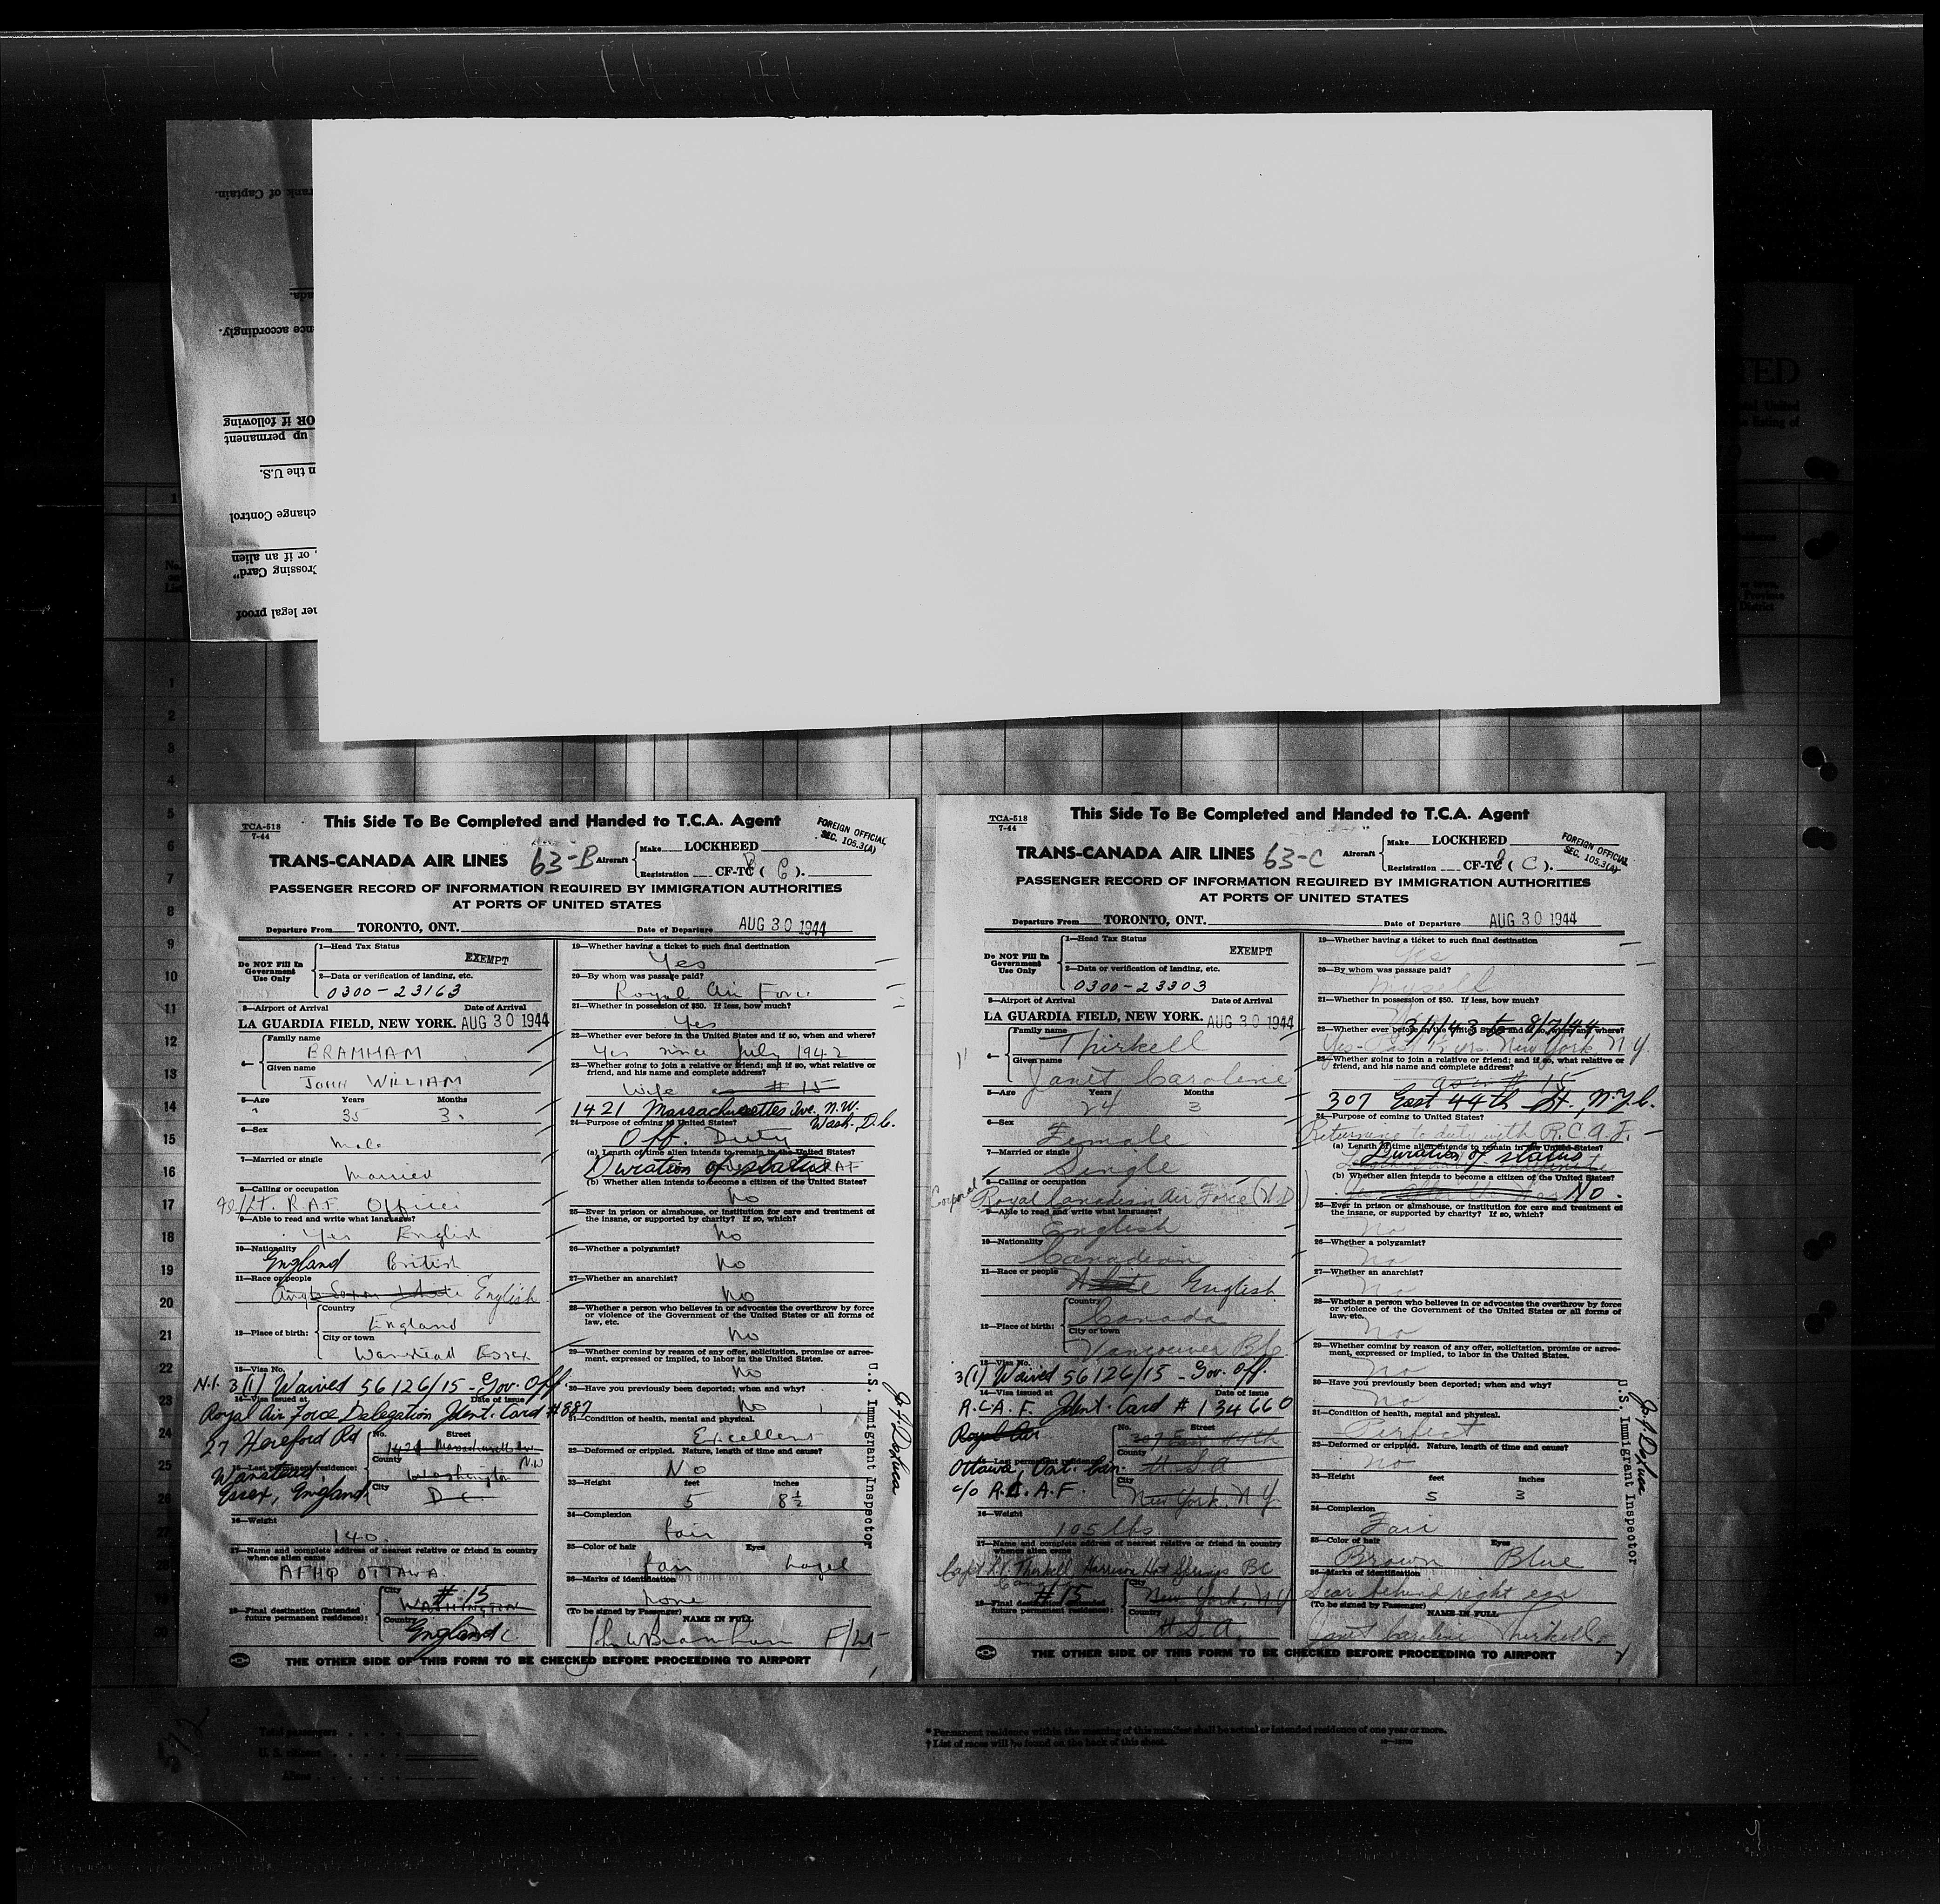 rank of Captain.
nce accordingly.
OR if following
up permanent
n the U.S.
change Control
, or if an alien
Crossing Card"
her legal proof
TED
1
2
3
4
5
6
7
8
9
10
11
12
13
14
15
16
17
18
19
20
21
22
23
24
25
26
27
This Side To Be Completed and Handed to T.C.A. Agent
TCA-518
7-44
FOREIGN OFFICIAL
SEC. 105.3(A)
TRANS-CANADA AIR LINES 63-B Aircraft
Make LOCKHEED
Registration CF-TC ( C ).
PASSENGER RECORD OF INFORMATION REQUIRED BY IMMIGRATION AUTHORITIES
AT PORTS OF UNITED STATES
Departure From TORONTO, ONT. Date of Departure AUG 30 1944
Do NOT Fill In
Government
Use Only
1—Head Tax Status
EXEMPT
2—Data or verification of landing, etc.
0300-23163
3—Airport of Arrival Date of Arrival
LA GUARDIA FIELD, NEW YORK. AUG 30 1944
4—
Family name
BRAMHAM
Given name
JOHN WILLIAM
5—Age Years Months
35 3.
6—Sex
Male
7—Married or single
Married
8—Calling or occupation
Fl/Lt. R.A.F. Officer
9—Able to read and write what languages?
Yes English
10—Nationality
England British
11—Race or people
English
12—Place of birth:
Country
England
City or town
Wanstead Essex
13—Visa No.
N.I. 3(1) Waived 56126/15 - Gov. Off.
14—Visa issued at Date of issue
Royal Air Force Delegation Ident. Card #887
37 Hereford Rd
Wanstead,
Essex, England
15—Last permanent residence:
No. Street
1421 Massachusetts Ave. N.W
County
Washington
City
D C
16—Weight
140.
17—Name and complete address of nearest relative or friend in country
whence alien came
AFHQ OTTAWA
18—Final destination (Intended
future permanent residence):
City
# 15
WASHINGTON
Country
England
19—Whether having a ticket to such final destination
Yes
20—By whom was passage paid?
Royal Air Force
21—Whether in possession of $50. If less, how much?
Yes
22—Whether ever before in the United States and if so, when and where?
Yes since July 1942
23—Whether going to join a relative or friend; and if so, what relative or
friend, and his name and complete address?
Wife as # 15
1421 Massachusettes Ave. N.W.
Wash. D.C.
24—Purpose of coming to United States?
Off. Duty
(a) Length of time alien intends to remain in the United States?
Duration of status RAF
(b) Whether alien intends to become a citizen of the United States?
No
25—Ever in prison or almshouse, or institution for care and treatment of
the insane, or supported by charity? If so, which?
No
26—Whether a polygamist?
No
27—Whether an anarchist?
No
28—Whether a person who believes in or advocates the overthrow by force
or violence of the Government of the United States or all forms of
law, etc.
No
29—Whether coming by reason of any offer, solicitation, promise or agree-
ment, expressed or implied, to labor in the United States.
No
30—Have you previously been deported; when and why?
No
31—Condition of health, mental and physical.
Excellent
32—Deformed or crippled. Nature, length of time and cause?
No
33—Height feet inches
5 8 1/2
34—Complexion
fair
35—Color of hair Eyes
fair hazel
36—Marks of identification
none
(To be signed by Passenger) NAME IN FULL
John W Bramham F/Lt
U.S. Immigrant Inspector
THE OTHER SIDE OF THIS FORM TO BE CHECKED BEFORE PROCEEDING TO AIRPORT
This Side To Be Completed and Handed to T.C.A. Agent
TCA-518
7-44
FOREIGN OFFICIAL
SEC. 105.3(A)
TRANS-CANADA AIR LINES 63-C Aircraft
Make LOCKHEED
Registration CF-TC ( C ).
PASSENGER RECORD OF INFORMATION REQUIRED BY IMMIGRATION AUTHORITIES
AT PORTS OF UNITED STATES
Departure From TORONTO, ONT. Date of Departure AUG 30 1944
Do NOT Fill In
Government
Use Only
1—Head Tax Status
EXEMPT
2—Data or verification of landing, etc.
0300-23303
3—Airport of Arrival Date of Arrival
LA GUARDIA FIELD, NEW YORK. AUG 30 1944
4—
Family name
Thirkell
Given name
Janet Caroline
5—Age Years Months
24 3
6—Sex
Female
7—Married or single
Single
8—Calling or occupation
Corporal Royal Canadian Air Force (W.D)
9—Able to read and write what languages?
English
10—Nationality
Canadian
11—Race or people
White English
12—Place of birth:
Country
Canada
City or town
Vancouver BC
13—Visa No.
3(1) Waived 56126/15 - Gov. Off.
14—Visa issued at Date of issue
R.C.A.F. Ident. Card # 134660
Royal Can
Ottawa, Ont. Can.
c/o R.C.A.F.
15—Last permanent residence:
No. Street
307 East 44th
County
U.S.A.
City
New York. N Y.
16—Weight
105 lbs
17—Name and complete address of nearest relative or friend in country
whence alien came
Thirkell Harrison Hot Springs BC
18—Final destination (Intended
future permanent residence):
# 15
City
New York. N Y
Country
U.S.A.
19—Whether having a ticket to such final destination
Yes
20—By whom was passage paid?
Myself
21—Whether in possession of $50. If less, how much?
22—Whether ever before in the United States and if so, when and where?
3/1/43 to 8/7/44
New York N.Y.
23—Whether going to join a relative or friend; and if so, what relative or
friend, and his name and complete address?
as in # 15
307 East 44th St., N.Y.C.
24—Purpose of coming to United States?
Returning to duty with R.C.A.F.
(a) Length of time alien intends to remain in the United States?
Duration of status
(b) Whether alien intends to become a citizen of the United States?
No.
25—Ever in prison or almshouse, or institution for care and treatment of
the insane, or supported by charity? If so, which?
No
26—Whether a polygamist?
No
27—Whether an anarchist?
No
28—Whether a person who believes in or advocates the overthrow by force
or violence of the Government of the United States or all forms of
law, etc.
No
29—Whether coming by reason of any offer, solicitation, promise or agree-
ment, expressed or implied, to labor in the United States.
No
30—Have you previously been deported; when and why?
No
31—Condition of health, mental and physical.
Perfect
32—Deformed or crippled. Nature, length of time and cause?
No
33—Height feet inches
5 3
34—Complexion
Fair
35—Color of hair Eyes
Brown Blue
36—Marks of identification
Scar behind right ear
(To be signed by Passenger) NAME IN FULL
Janet Caroline Thirkell.
U.S. Immigrant Inspector
THE OTHER SIDE OF THIS FORM TO BE CHECKED BEFORE PROCEEDING TO AIRPORT
572
Total passengers
U. S. citizens
Aliens
* Permanent residence within the meaning of this manifest shall be actual or intended residence of one year or more.
† List of races will be found on the back of this sheet.